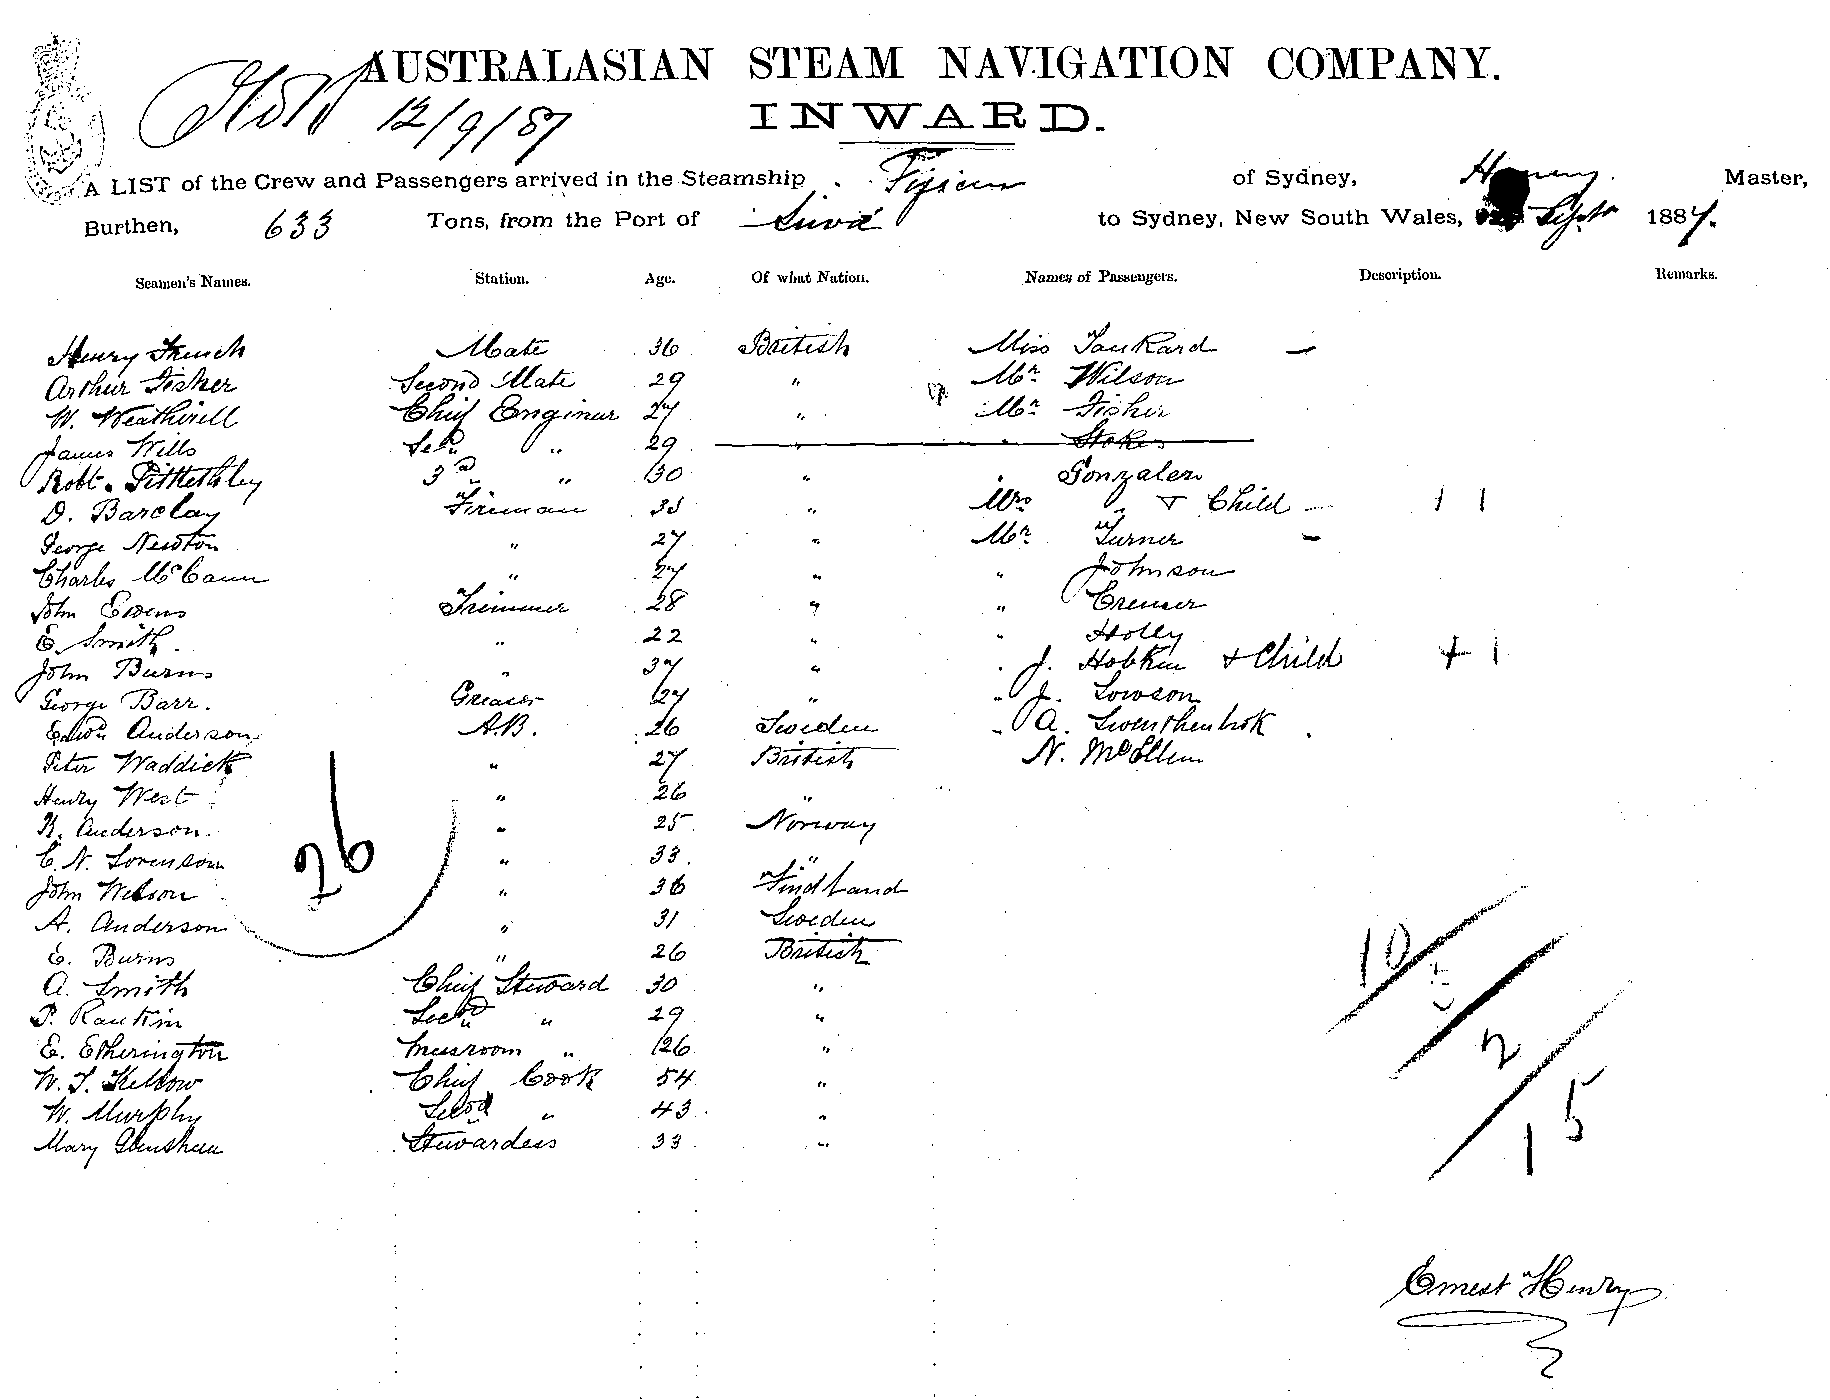 AUSTRALASIAN STEAM NAVIGATION COMPANY.
12/9/87
INWARD.
A LIST of the Crew and Passengers arrived in the Steamship Fijian of Sydney, Henry Master,
Burthen, 633 Tons, from the Port of Suva to Sydney, New South Wales, Septr 1887.
Seamen's Names. Station. Age. Of what Nation. Names of Passengers. Description. Remarks.
Henry French Mate 36 British Miss Tankard —
Arthur Fisher Second Mate 29 " Mr Wilson
W. Weatherill Chief Engineer 27 " Mr Fisher
James Wills Secd " 29 " " Stokes
Robt. 3rd " 30 " " Gonzalez
D. Barclay Fireman 35 " Mrs " & Child — 1 1
George Newton " 27 " Mr Turner —
Charles McCann " 27 " " Johnson
John Ewens Trimmer 28 " "
E. Smith. " 22 " " Holly
John Burns " 37 " " J. & Child + 1
George Barr. Greaser 27 " " J. Lowson
Edwd Anderson A.B. 26 Sweden " A.
Peter Waddick " 27 British N. McEllen
Henry West " 26 "
K. Anderson. " 25 Norway
26
C. N. Sorenson " 33 "
John Wilson " 36 Findland
A. Anderson " 31 Sweden
E. Burns " 26 British
10
A. Smith Chief Steward 30 "
P. Rankin Secd " 29 "
E. Etherington Messroom " 26 "
2
W. T. Kellow Chief Cook 54 "
W. Murphy Secd " 43 "
15
Mary Stewardess 33 "
Ernest Henry